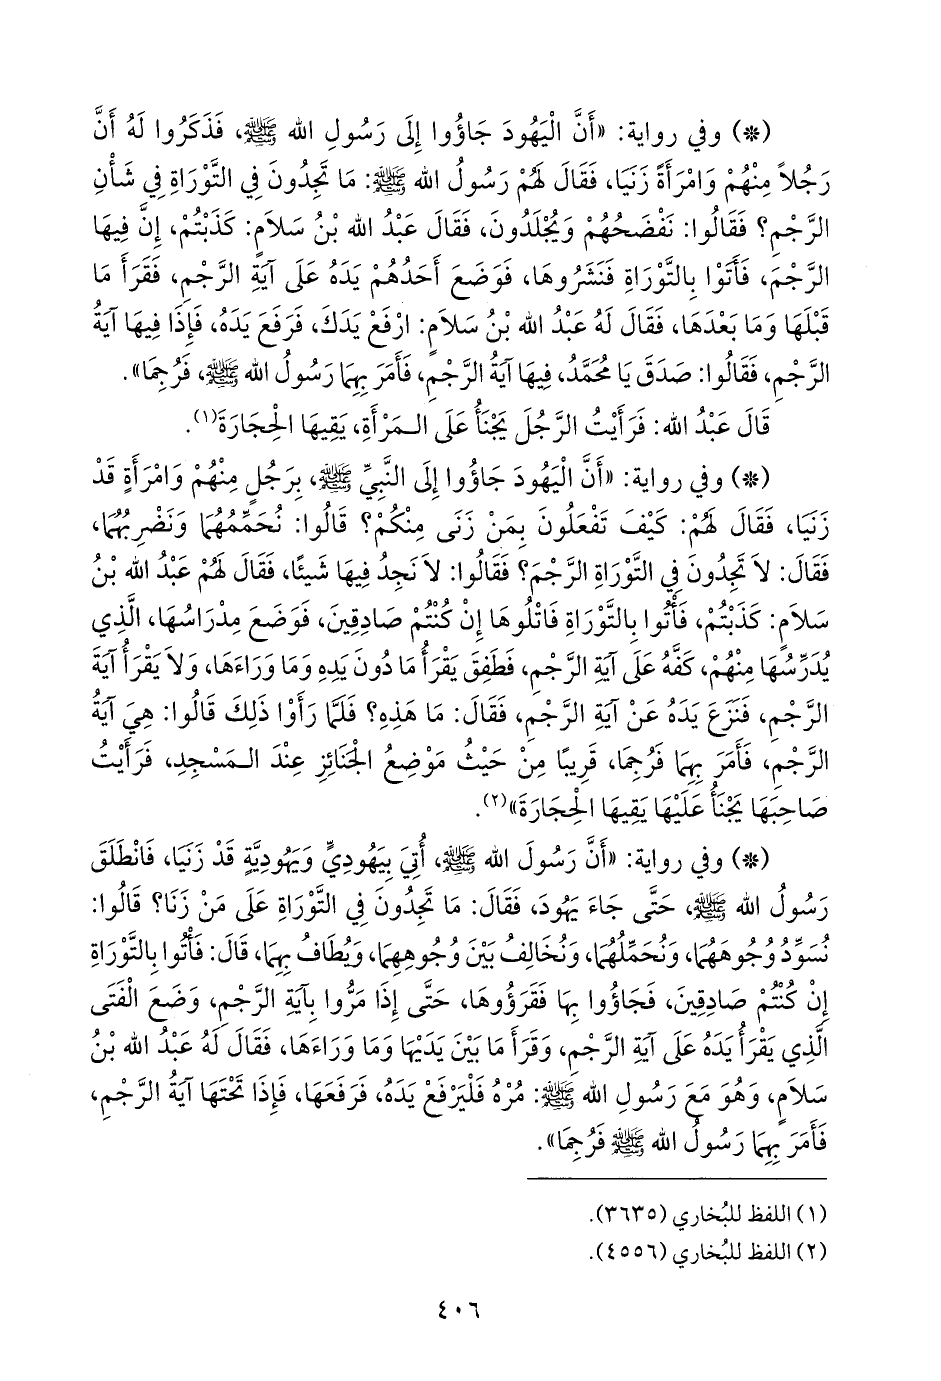 (*) وفي رواية: «أَنَّ الْيَهُودَ جَاؤُوا إِلَى رَسُولِ الله ﷺ، فَذَكَرُوا لَهُ أَنَّ
رَجُلاً مِنْهُمْ وَامْرَأَةً زَنَيَا، فَقَالَ لَهُمْ رَسُولُ الله ﷺ: مَا تَجِدُونَ فِي التَّوْرَاةِ فِي شَأْنِ
الرَّجْمِ؟ فَقَالُوا: نَفْضَحُهُمْ وَيُجْلَدُونَ، فَقَالَ عَبْدُ الله بْنُ سَلاَمٍ: كَذَبْتُمْ، إِنَّ فِيهَا
الرَّجْمَ، فَأَتَوْا بِالتَّوْرَاةِ فَنَشَرُوهَا، فَوَضَعَ أَحَدُهُمْ يَدَهُ عَلَى آيَةِ الرَّجْمِ، فَقَرَأَ مَا
قَبْلَهَا وَمَا بَعْدَهَا، فَقَالَ لَهُ عَبْدُ الله بْنُ سَلاَمٍ: ارْفَعْ يَدَكَ، فَرَفَعَ يَدَهُ، فَإِذَا فِيهَا آيَةُ
الرَّجْمِ، فَقَالُوا: صَدَقَ يَا مُحَمَّدُ، فِيهَا آيَةُ الرَّجْمِ، فَأَمَرَ بِهِمَا رَسُولُ الله ﷺ، فَرُجِمَا».
قَالَ عَبْدُ الله: فَرَأَيْتُ الرَّجُلَ يَجْنَأُ عَلَى الـمَرْأَةِ، يَقِيهَا الْحِجَارَةَ(١).
(*) وفي رواية: «أَنَّ الْيَهُودَ جَاؤُوا إِلَى النَّبِيِّ ﷺ، بِرَجُلٍ مِنْهُمْ وَامْرَأَةٍ قَدْ
زَنَيَا، فَقَالَ لَهُمْ: كَيْفَ تَفْعَلُونَ بِمَنْ زَنَى مِنْكُمْ؟ قَالُوا: نُحَمِّمُهُمَا وَنَضْرِبُهُمَا،
فَقَالَ: لاَ تَجِدُونَ فِي التَّوْرَاةِ الرَّجْمَ؟ فَقَالُوا: لاَ نَجِدُ فِيهَا شَيئًا، فَقَالَ لَهُمْ عَبْدُ الله بْنُ
سَلاَمٍ: كَذَبْتُمْ، فَأْتُوا بِالتَّوْرَاةِ فَاتْلُوهَا إِنْ كُنْتُمْ صَادِقِينَ، فَوَضَعَ مِدْرَاسُهَا، الَّذِي
يُدَرِّسُهَا مِنْهُمْ، كَفَّهُ عَلَى آيَةِ الرَّجْمِ، فَطَفِقَ يَقْرَأُ مَا دُونَ يَدِهِ وَمَا وَرَاءَهَا، وَلاَ يَقْرَأُ آيَةَ
الرَّجْمِ، فَنَزَعَ يَدَهُ عَنْ آيَةِ الرَّجْمِ، فَقَالَ: مَا هَذِهِ؟ فَلَمَّا رَأَوْا ذَلِكَ قَالُوا: هِيَ آيَةُ
الرَّجْمِ، فَأَمَرَ بِهِمَا فَرُجِمَا، قَرِيبًا مِنْ حَيْثُ مَوْضِعُ الْجَنَائِزِ عِنْدَ الـمَسْجِدِ، فَرَأَيْتُ
صَاحِبَهَا يَجْنَأُ عَلَيْهَا يَقِيهَا الْحِجَارَةَ»(٢).
(*) وفي رواية: «أَنَّ رَسُولَ الله ﷺ، أُتِيَ بِيَهُودِيٍّ وَيَهُودِيَّةٍ قَدْ زَنَيَا، فَانْطَلَقَ
رَسُولُ الله ﷺ، حَتَّى جَاءَ يَهُودَ، فَقَالَ: مَا تَجِدُونَ فِي التَّوْرَاةِ عَلَى مَنْ زَنَا؟ قَالُوا:
نُسَوِّدُ وُجُوهَهُمَا، وَنُحَمِّلُهُمَا، وَنُخَالِفُ بَيْنَ وُجُوهِهِمَا، وَيُطَافُ بِهِمَا، قَالَ: فَأْتُوا بِالتَّوْرَاةِ
إِنْ كُنْتُمْ صَادِقِينَ، فَجَاؤُوا بِهَا فَقَرَؤُوهَا، حَتَّى إِذَا مَرُّوا بِآيَةِ الرَّجْمِ، وَضَعَ الْفَتَى
الَّذِي يَقْرَأُ يَدَهُ عَلَى آيَةِ الرَّجْمِ، وَقَرَأَ مَا بَيْنَ يَدَيْهَا وَمَا وَرَاءَهَا، فَقَالَ لَهُ عَبْدُ الله بْنُ
سَلاَمٍ، وَهُوَ مَعَ رَسُولِ الله ﷺ: مُرْهُ فَلْيَرْفَعْ يَدَهُ، فَرَفَعَهَا، فَإِذَا تَحْتَهَا آيَةُ الرَّجْمِ،
فَأَمَرَ بِهِمَا رَسُولُ الله ﷺ فَرُجِمَا».
(١) اللفظ للبُخاري (٣٦٣٥).
(٢) اللفظ للبُخاري (٤٥٥٦).
٤٠٦